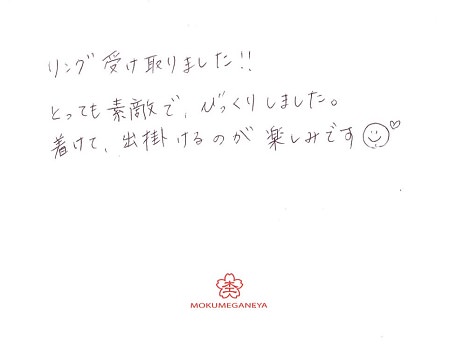 リング受け取りました!!
とっても素敵で、びっくりしました。
着けて、出掛けるのが楽しみです
MOKUMEGANEYA